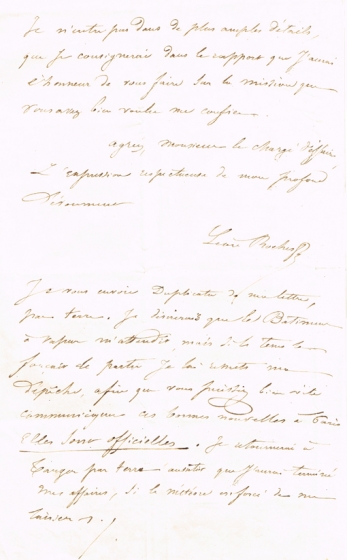 Je n'entre pas dans de plus amples détails,
que je consignerai dans le rapport que J'aurai
l'honneur de vous faire sur la mission que
vous avez bien voulu me confier.
agréez, monsieur le chargé d'affaire
L'expression respectueuse de mon profond
Dévoument
Léon Roches
Je vous envoie Duplicata de ma lettre,
par terre. Je désirerais que le Bâtiment
à vapeur m'attendit, mais si le tems le
forçait de partir Je lui remets ma
dépêche, afin que vous puissiez bien vite
communiquer ces bonnes nouvelles à Paris
Elles Sont officielles. Je retournerai à
Tanger par terre aussitot que J'aurai terminé
mes affaires, si le